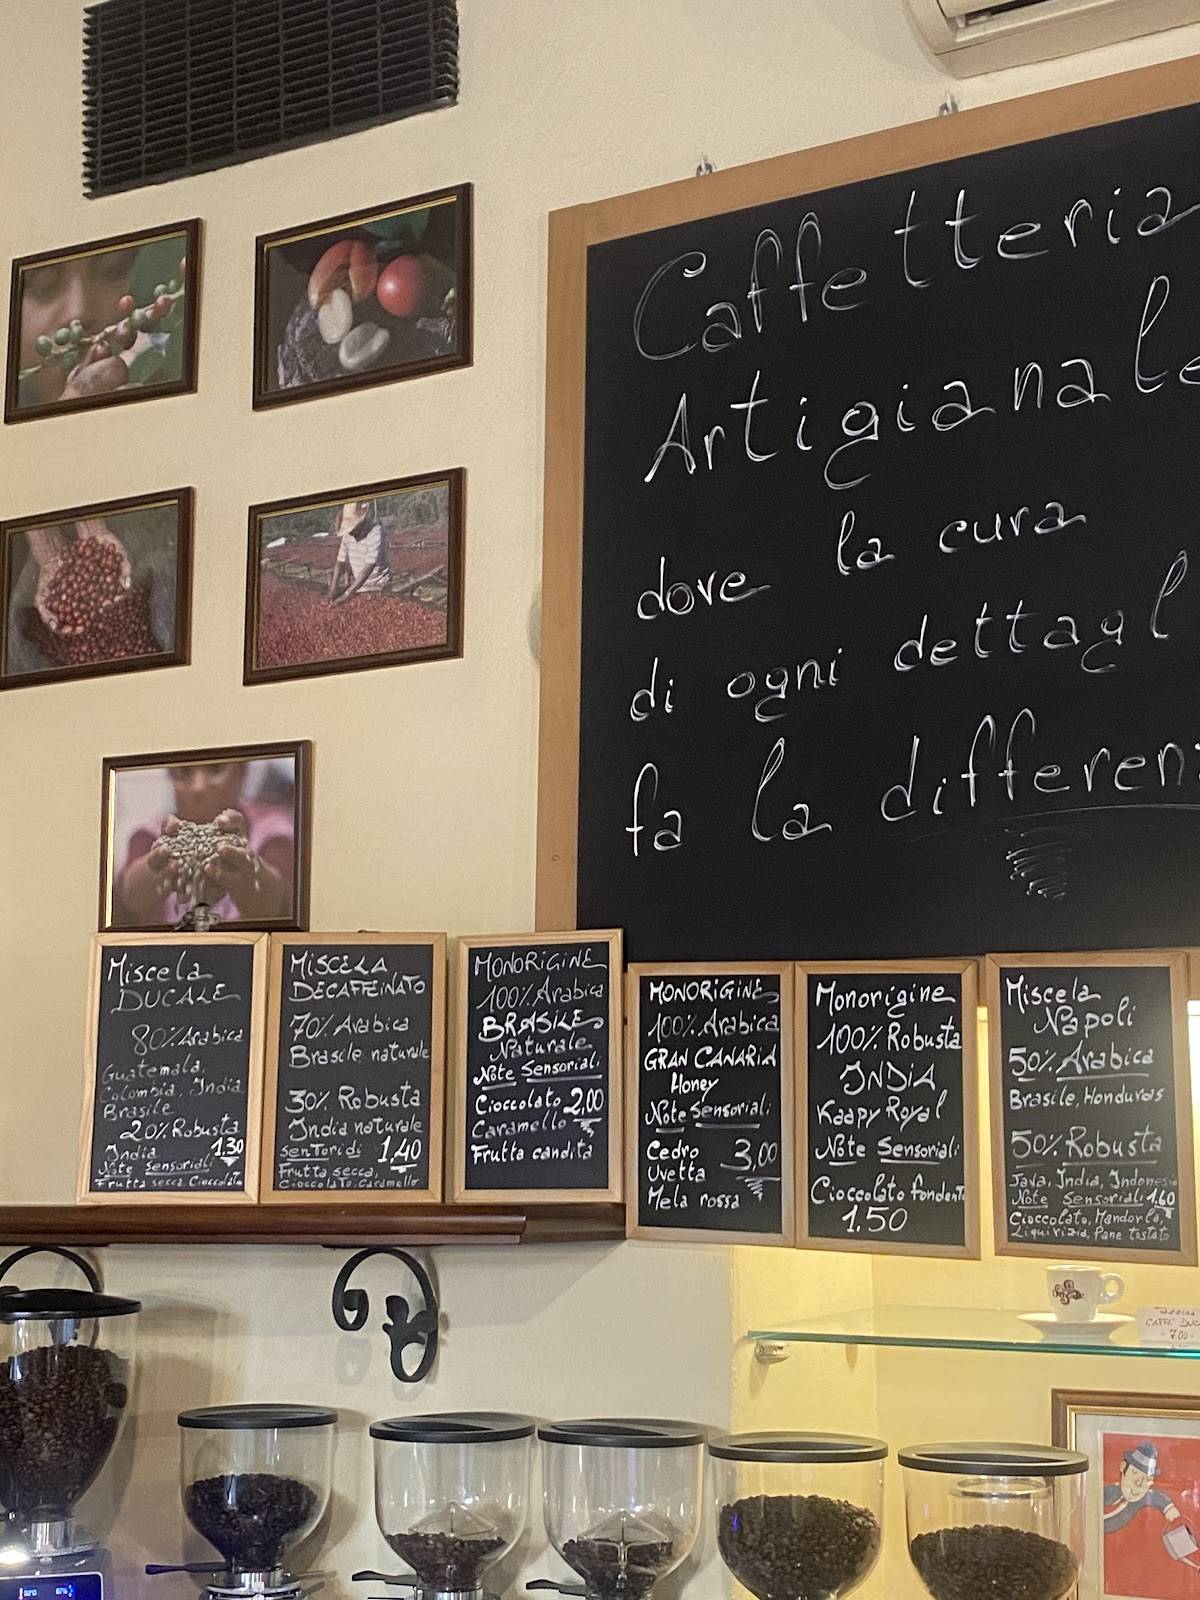 Caffetteria
Artigianale
dove la cura
di ogni dettagl
fa la differen
Miscela
DUCALE
80% Arabica
Guatemala,
Colombia, India
Brasile
20% Robusta
India 1,30
Note Sensoriali
Frutta secca, Cioccolato
MISCELA
DECAFFEINATO
70% Arabica
Brasile naturale
30% Robusta
India naturale
Sentori di 1,40
Frutta secca,
Cioccolato, Caramello
MONORIGINE
100% Arabica
BRASILE
Naturale
Note Sensoriali
Cioccolato 2,00
Caramello
Frutta candita
MONORIGINE
100% Arabica
GRAN CANARIA
Honey
Note Sensoriali
Cedro 3,00
Uvetta
Mela rossa
Monorigine
100% Robusta
INDIA
Kaapy Royal
Note Sensoriali
Cioccolato fondente
1.50
Miscela
Napoli
50% Arabica
Brasile, Honduras
50% Robusta
Java, India, Indonesia
Note Sensoriali 1,60
Cioccolato, Mandorla,
Liquirizia, Pane tostato
CAFFE' DUC
7.00